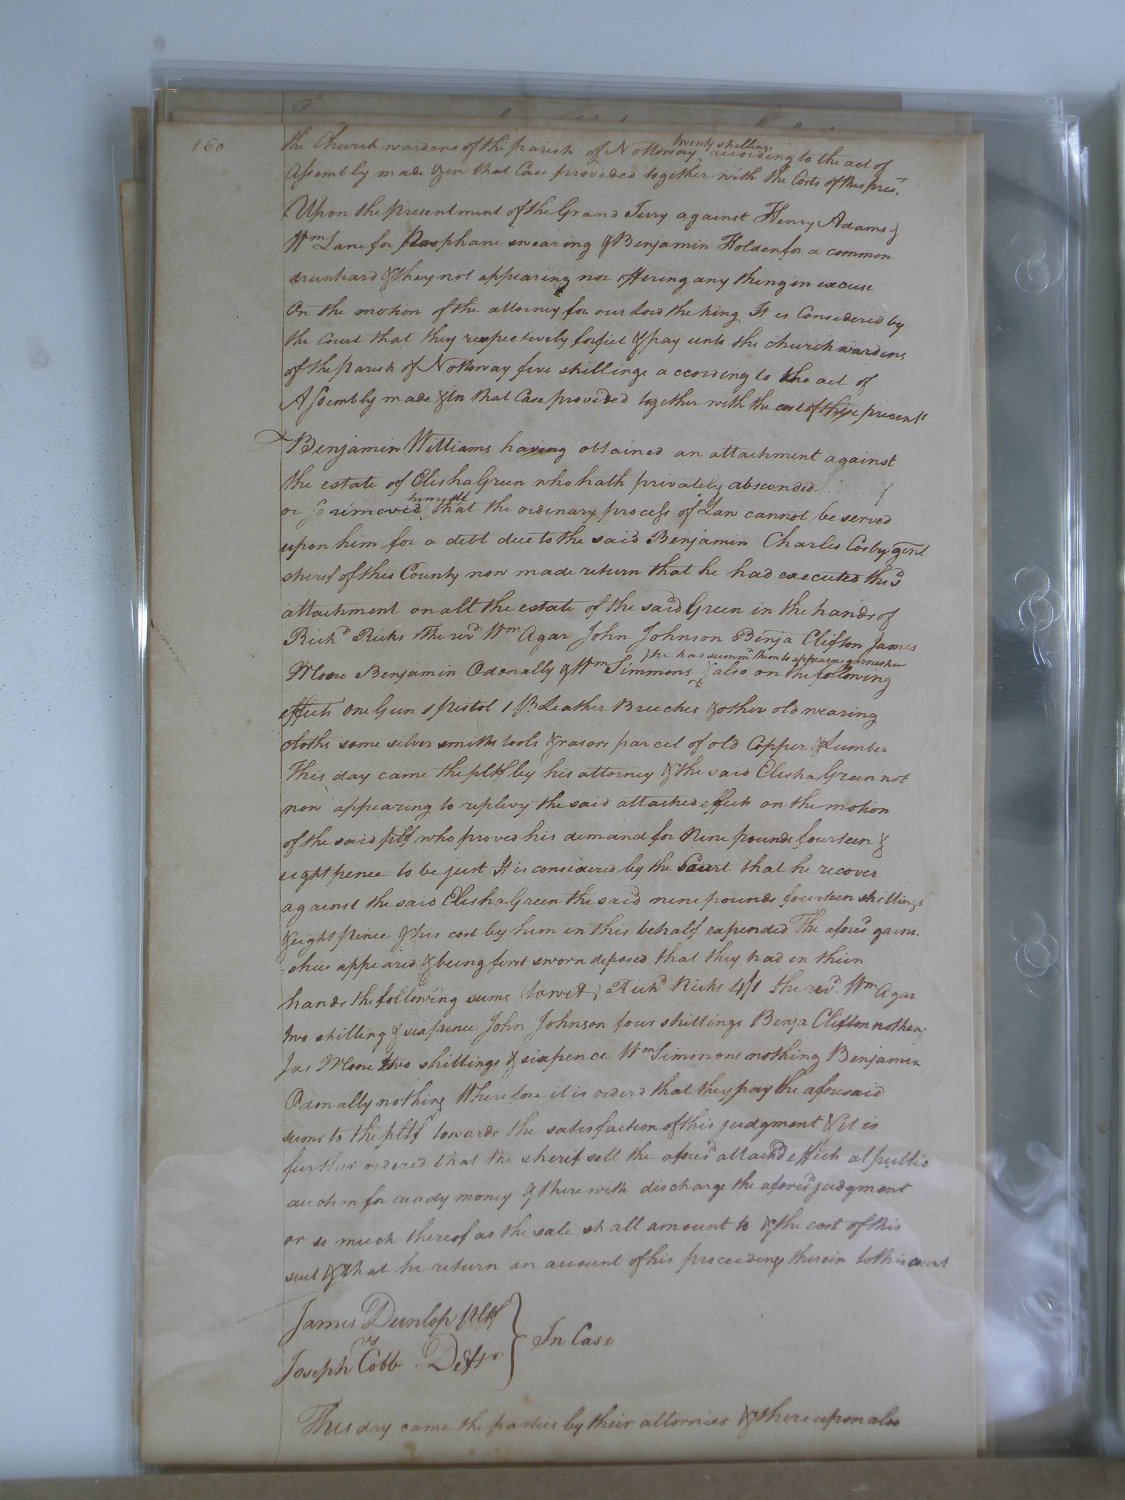 160
the Church wardens of the parish of Nottoway twenty shillings according to the act of
Assembly made & in that Case provided together with the Costs of this pres.t
Upon the presentment of the Grand Jury against Henry Adams &
Wm Lane for Prophane swearing & Benjamin Holden for a common
drunkard & they not appearing nor offering any thing in excuse
On the motion of the attorney for our Lord the king It is Considered by
the Court that they respectively forfiet & pay unto the church wardens
of the parish of Nottoway five shillings according to the act of
Assembly made & in that Case provided together with the cost of these presents
Benjamin Williams having obtained an attachment against
the estate of Elisha Green who hath privately absconded
or so removed himself that the ordinary process of Law cannot be served
upon him for a debt due to the said Benjamin Charles Cosby gent
sherif of this County now made return that he had executed the sd
attachment on all the estate of the said Green in the hands of
Richd Ricks The revd Wm Agar John Johnson Benja Clifton James
Moore Benjamin Odonally & Wm Simmons & he had summd them to appear as garnishees & also on the following
effects one Gun 1 pistol 1 pr Leather Breeches & other old wearing
cloths some silver smiths tools & rasors parcel of old Copper & Lumber
This day came the pltf by his attorney & the said Elisha Green not
now appearing to replevy the said attached effects on the motion
of the said pltf who proved his demand for Nine pounds fourteen &
eight pence to be just It is considered by the Court that he recover
against the said Elisha Green the said nine pounds fourteen shillings
& eight pence & his cost by him in this behalf expended The aforesd garni-
shees appeared & being first sworn deposed that they had in their
hands the following sums (towit) Richd Ricks 4/1 the revd Wm Agar
two shilling & sixpence John Johnson four shillings Benja Clifton nothing
Jas Moore two shillings & sixpence Wm Simmons nothing Benjamin
Odonally nothing Wherefore it is orderd that they pay the aforesaid
sums to the pltf towards the satisfaction of this judgment & it is
further ordered that the sherif sell the aforesd attachd effects at public
auction for ready money & therewith discharge the aforesd judgment
or so much thereof as the sale shall amount to & the cost of this
suit & that he return an account of his proceedings therein to this court
James Dunlop pltf
vs
Joseph Cobb Deft
In Case
This day came the parties by their attornies & thereupon also